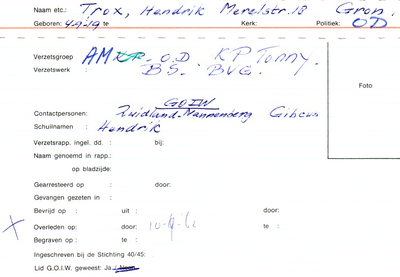 Naam etc.: Trox, Hendrik Merelstr. 18 Gron.
Geboren: 4-9-19 te Kerk: Politiek: OD
Verzetsgroep AM K.P. O.D KP Tonny
Verzetswerk B.S. BVG.
Foto
GOIW
Contactpersonen: Zuidland-Nannenberg Gibcus
Schuilnaam : Hendrik
Verzetsrapp. ingel. dd. : bij:
Naam genoemd in rapp.:
op bladzijde:
Gearresteerd op : door:
Gevangen gezeten in :
Bevrijd op : uit : door:
X Overleden op: door: te :
Begraven op : te :
Ingeschreven bij de Stichting 40/45:
Lid G.O.I.W. geweest: Ja / Neen